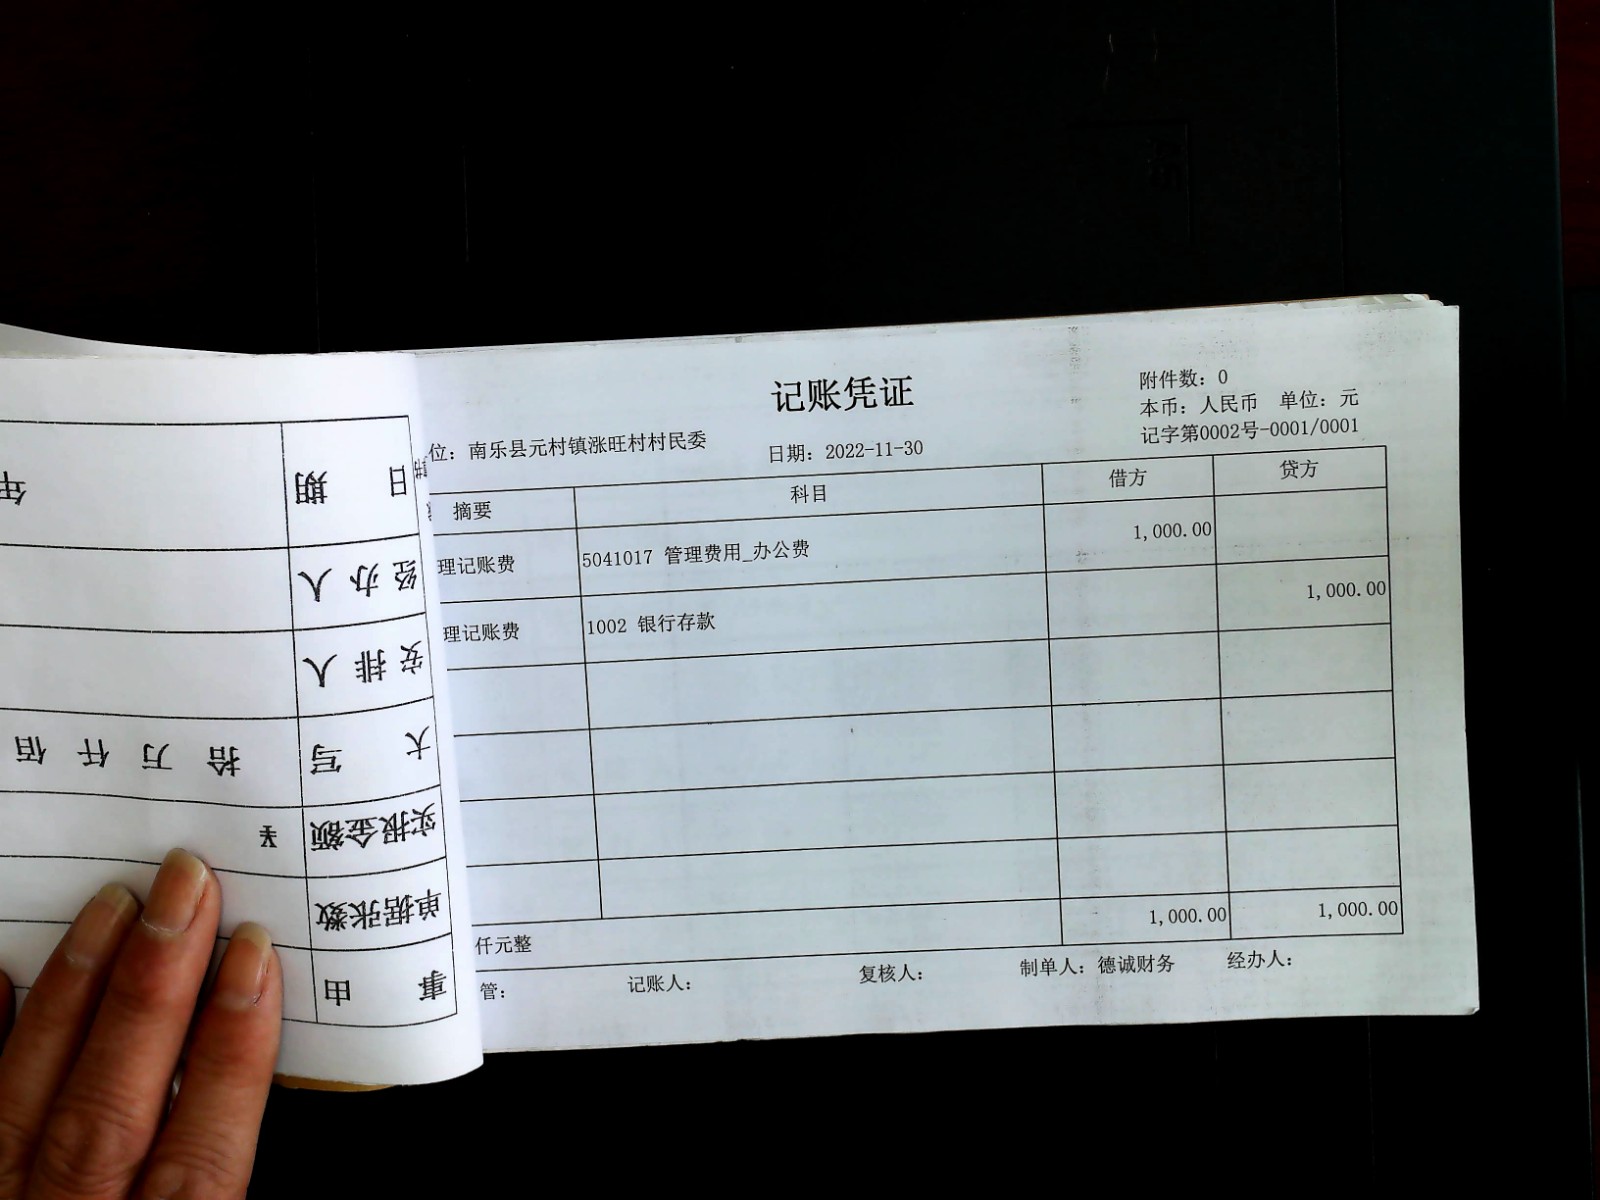 记账凭证
附件数: 0
本币: 人民币 单位: 元
记字第0002号-0001/0001
位: 南乐县元村镇涨旺村村民委
日期: 2022-11-30
摘要 科目 借方 贷方
理记账费 5041017 管理费用_办公费 1,000.00
理记账费 1002 银行存款 1,000.00
仟元整 1,000.00 1,000.00
管: 记账人: 复核人: 制单人: 德诚财务 经办人:
事由
单据张数
实报金额 ¥
大写 拾万仟佰
安排人
经办人
日期 年